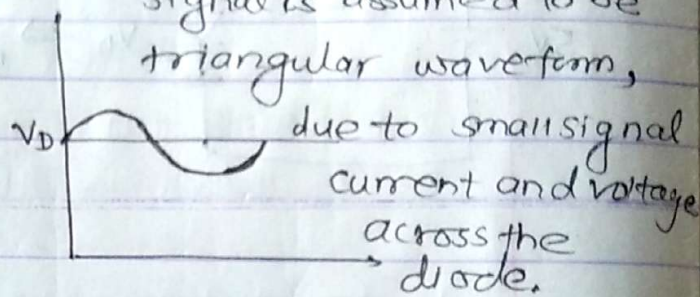 signal is assumed to be
triangular waveform,
VD due to small signal
current and voltage
across the
diode.